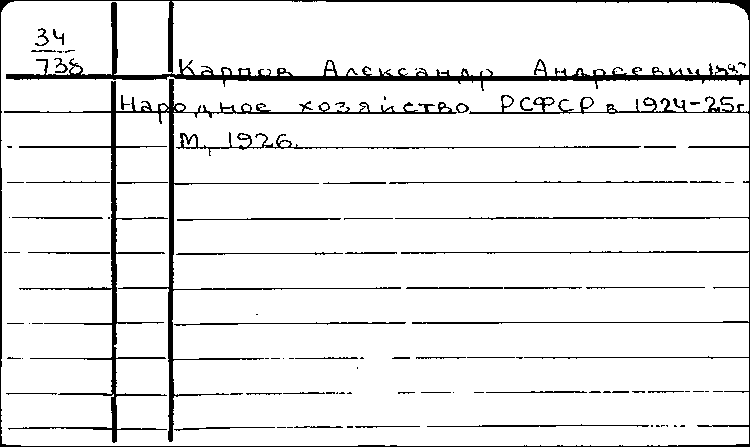 34
738
Карпов Александр Андреевич,
Народное хозяйство РСФСР в 1924-25г.
М., 1926.